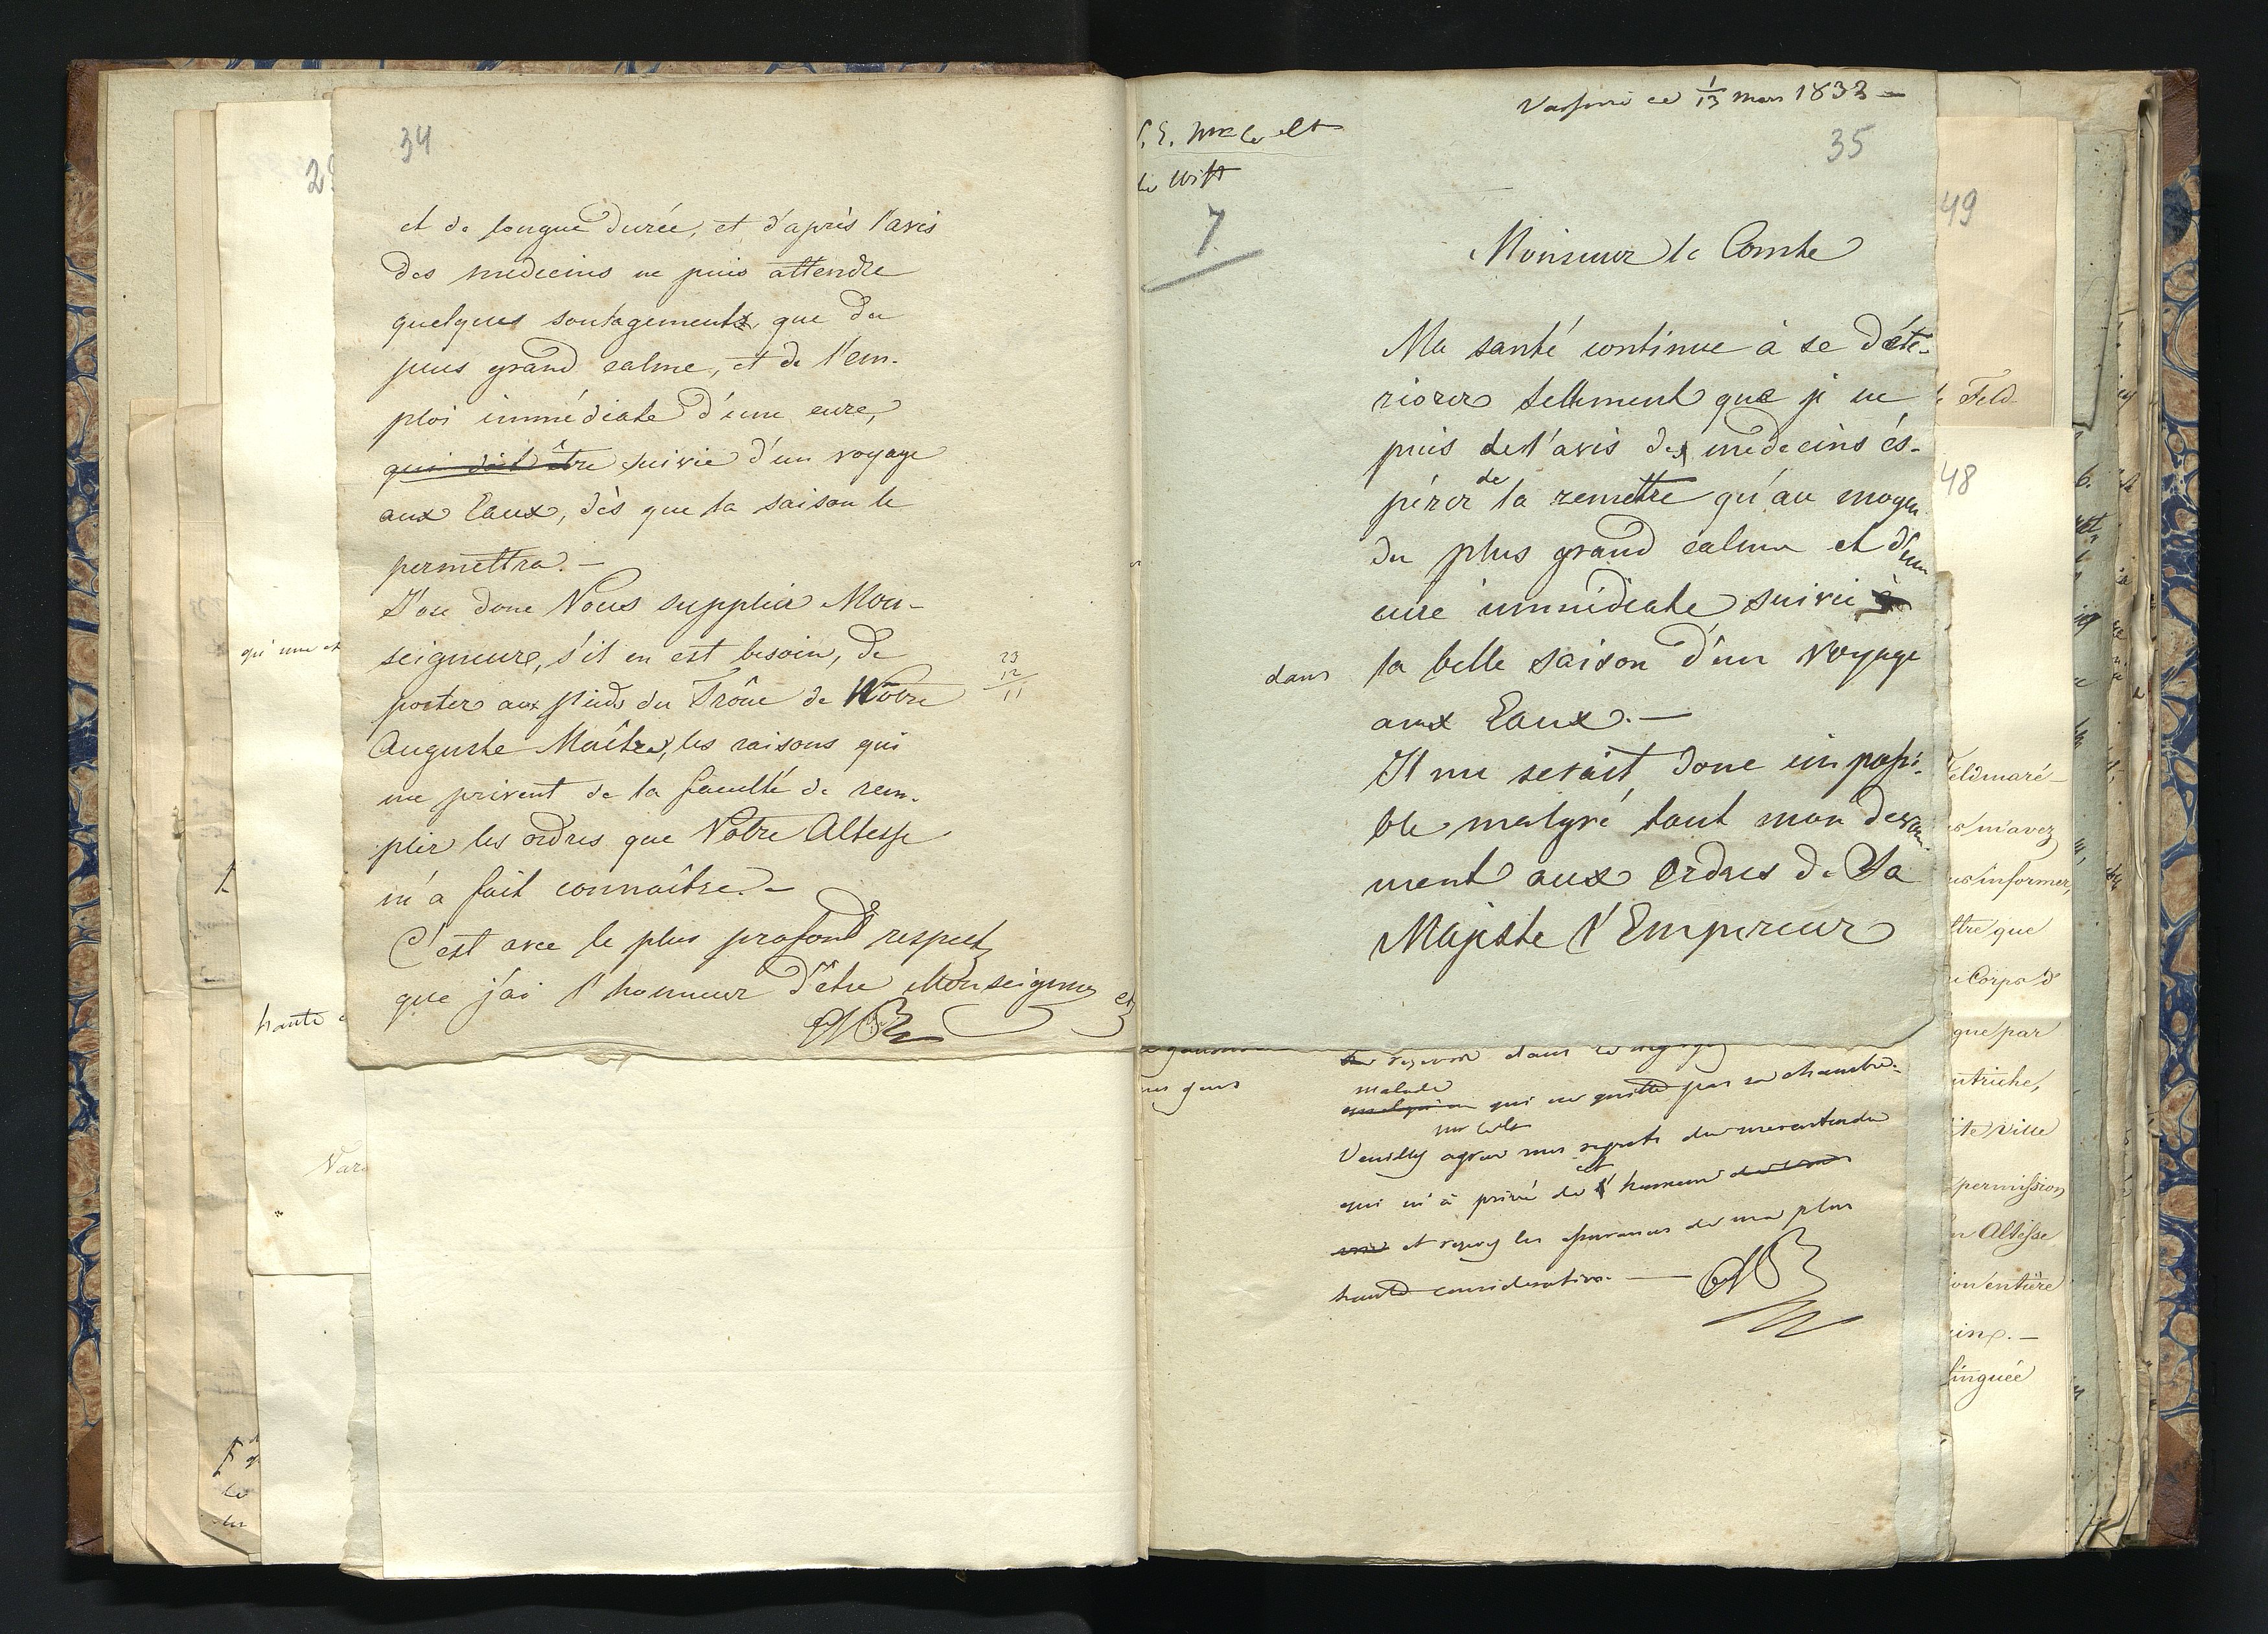 34
et de longue durée, et d'après l'avis
des medecins ne puis attendre
quelques soulagements, que du
puus grand calme, et de l'em-
ploi immédiate d'une cure,
qui doit être suivie d'un voyage
aux Eaux, dès que la saison le
permettra. —
J'ose donc Vous supplier Mon-
seigneure, s'il en est besoin, de
porter aux pieds du Trône de Nôtre
Auguste Maître, les raisons qui
me privent de la faculté de rem-
plir les ordres que Votre Altesse
m'a fait connaître. —
C'est avec le plus profond respect
que j'ai l'honneur d'être Monseigneur
23
12
11
29
qu'une et
haute
35
ce 1/13 mars 1833 —
S. E. Mr le Ct
de Witt
7
Monsieur le Comte
Ma santé continue à se déte-
riorer tellement que je ne
puis de l'avis des medecins es-
pérer de la remettre qu'au moyen
du plus grand calme et d'une
cure immédiate suivie
dans la belle saison d'un voyage
aux Eaux. —
Il me serait donc impossi-
ble malgré tout mon devoue-
ment aux ordres de Sa
Majeste l'Empereur
dans
malade
qui ne quitte pas sa chambre.
Veuillez agréer mes regrets du
qui m'a privé de l'honneur
et reçevez les assurances de ma plus
haute consideration. —
49
Feld
48
Feldmaré-
m'avez
informer,
que
Corps d'
que par
Ville
permission
Altesse
entière